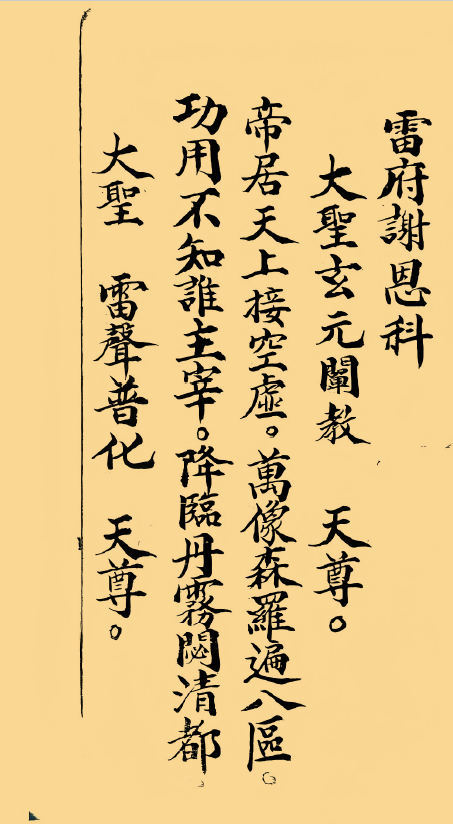 雷府謝恩科
大聖玄元闡教 天尊。
帝居天上接空虛。萬像森羅遍八區。
功用不知誰主宰。降臨丹霧閟清都
大聖 雷聲普化 天尊。